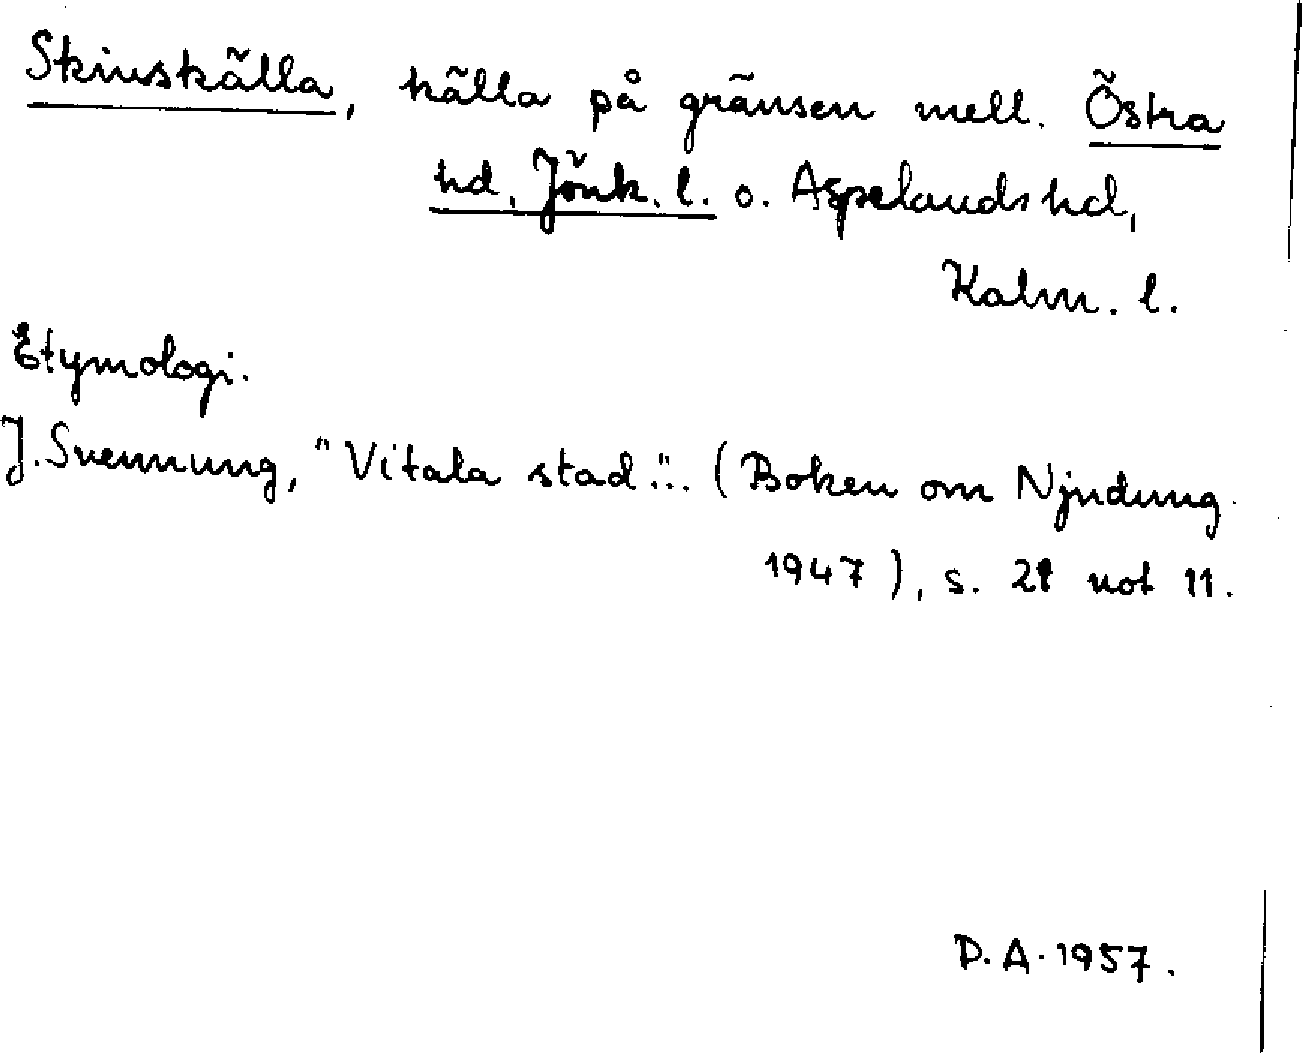 Skinskälla, källa på gränsen mell. Östra
hd, Jönk. l. o. Aspelands hd,
Kalm. l.
Etymologi.
J. Svennung, "Vitala stad"... (Boken om Njudung.
1947), s. 21 not 11.
D.A. 1957.